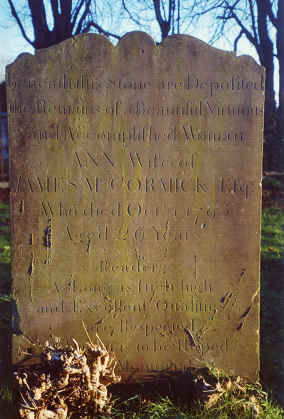 Beneath this Stone are Deposited
the Remains of a Beautiful Virtuous
and Accomplished Woman
ANN Wife of
JAMES M'CORMICK Esq
Who died Oct
Aged 26 Years
Reader,
As Long as such high
and Excellent Qualities
are Respected
to be Hoped